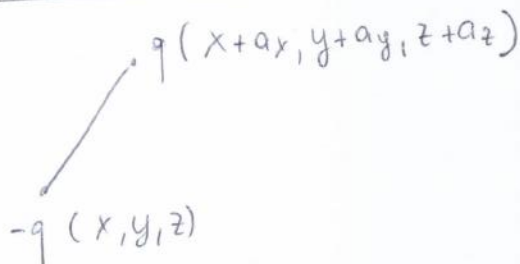 q (x+ax, y+ay, z+az)
-q (x, y, z)